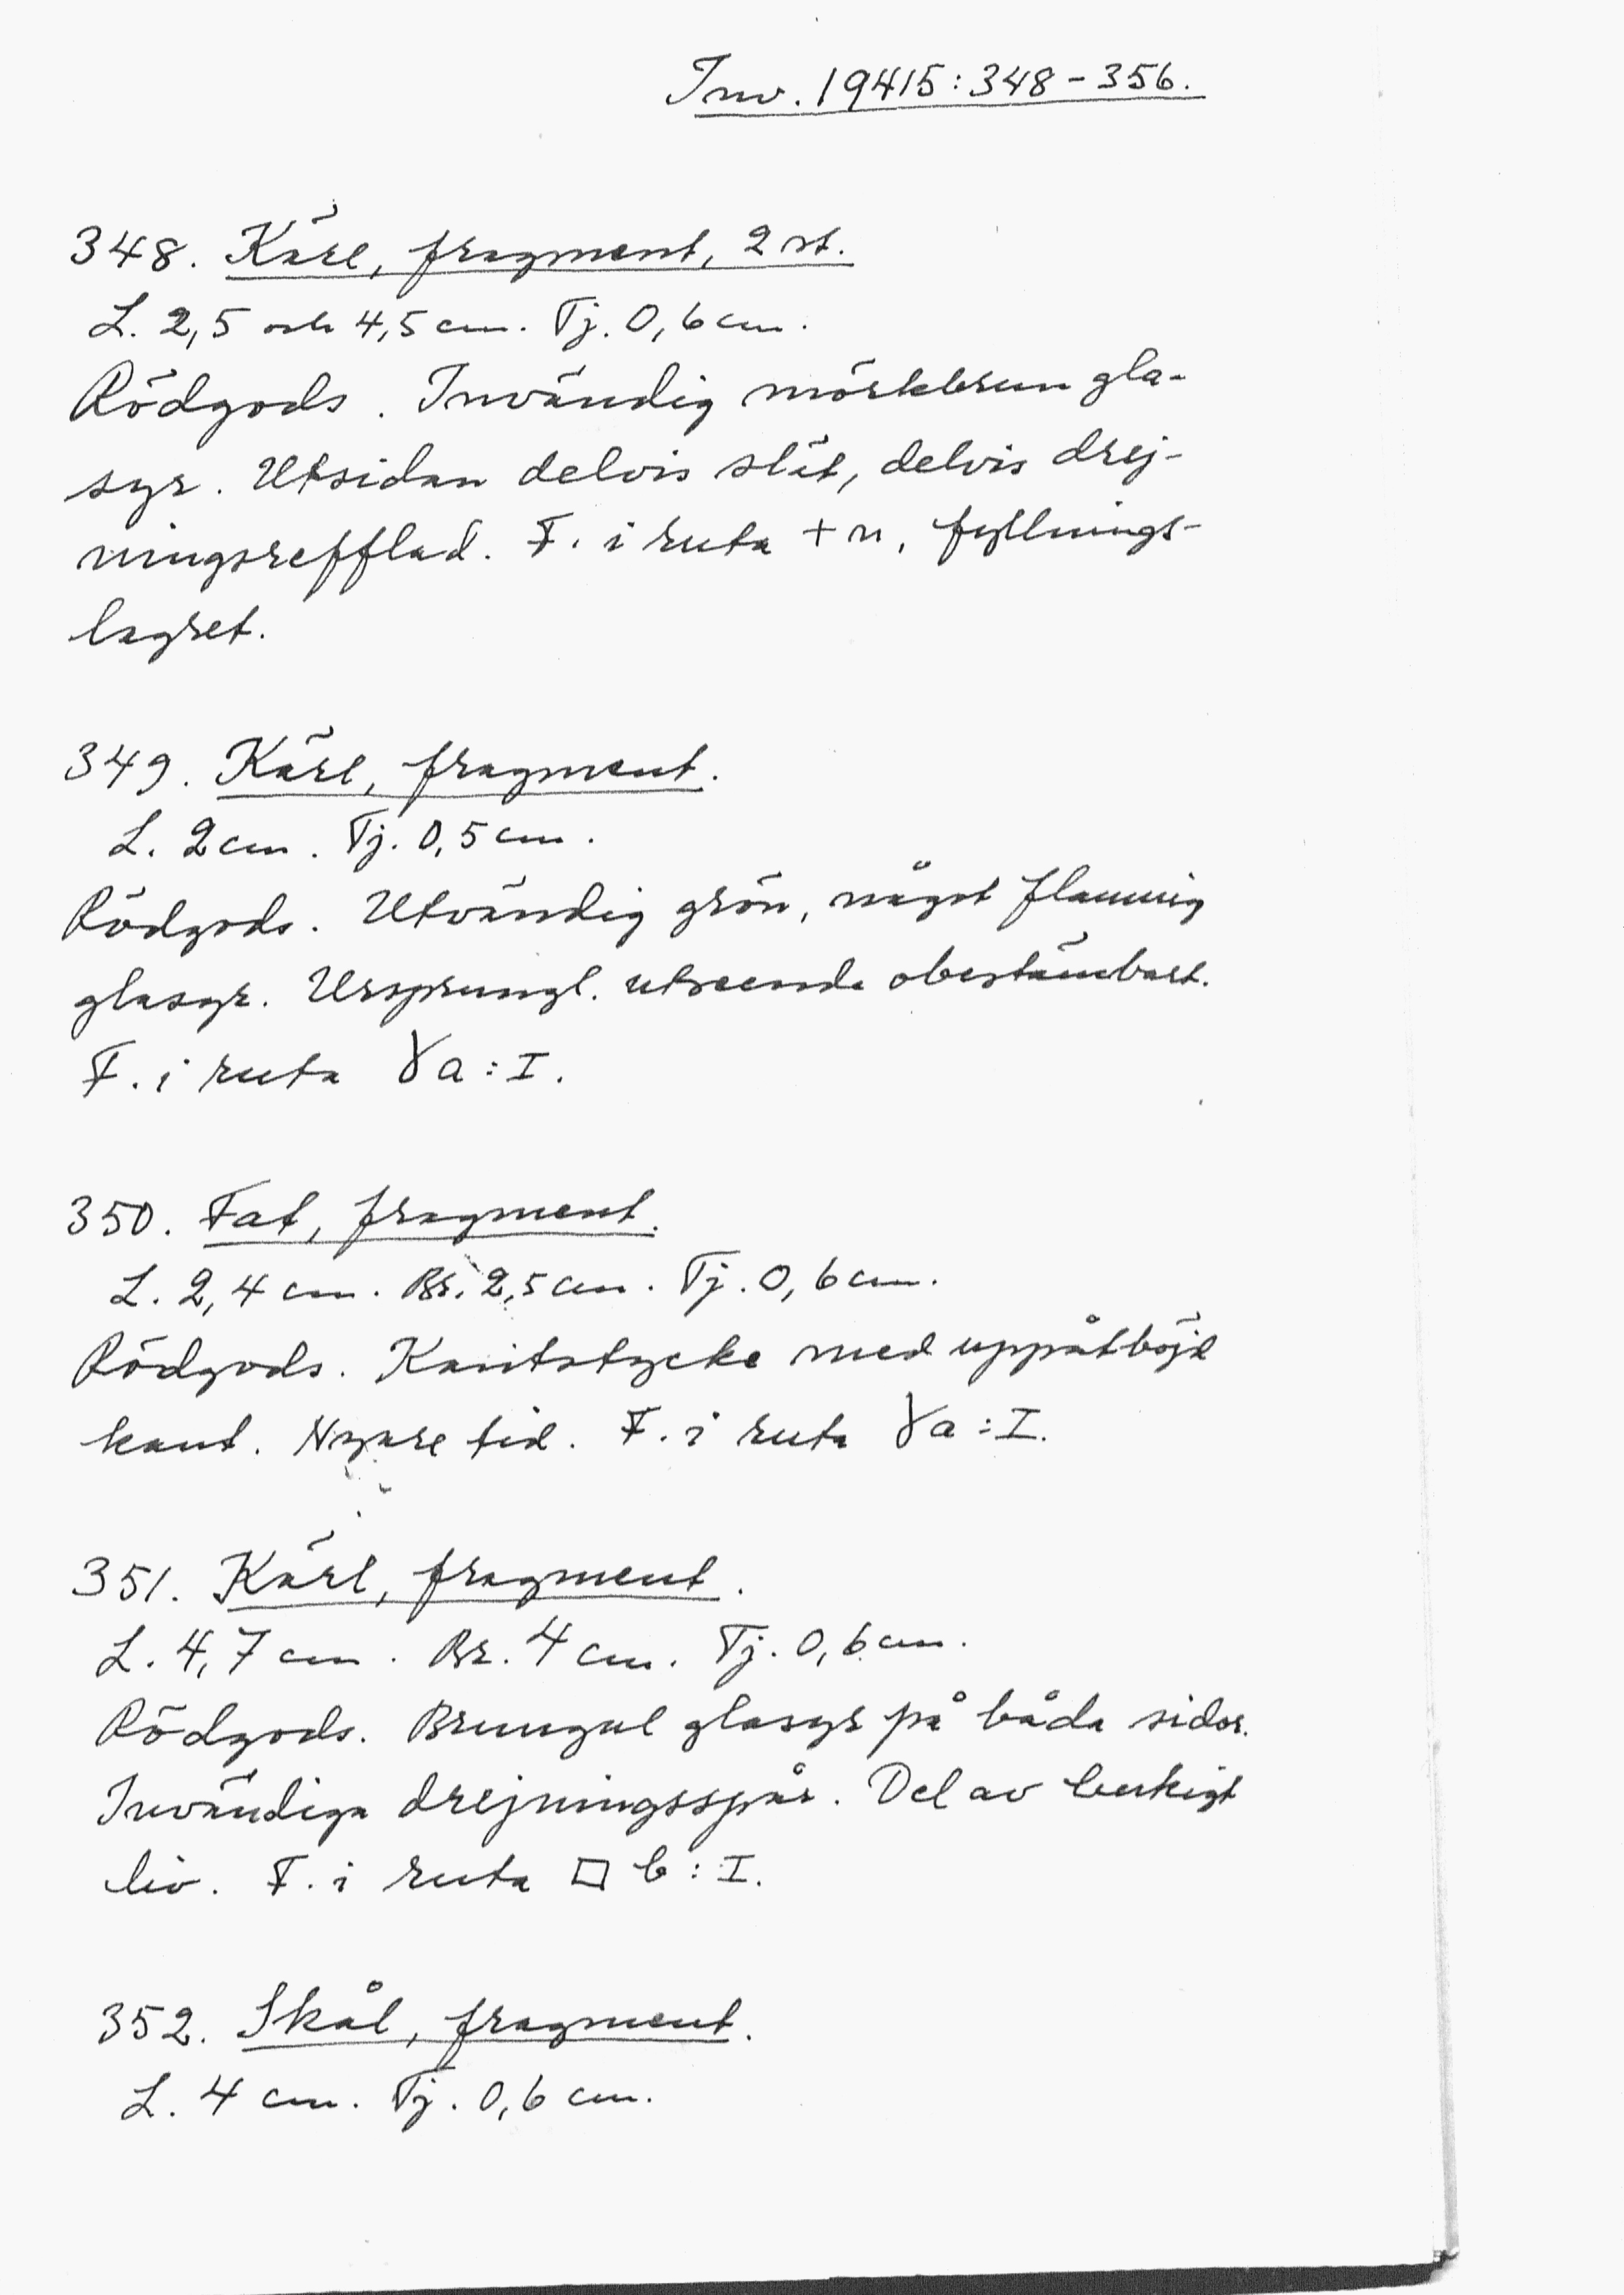 Inv. 19415:348-356.
348. Kärl, fragment, 2 st.
L. 2,5 och 4,5 cm. Tj. 0,6 cm.
Rödgods. Invändig mörkbrun gla-
syr. Utsidan delvis slät, delvis drej-
ningsrefflad. F. i ruta + n, fyllnings-
lagret.
349. Kärl, fragment.
L. 2 cm. Tj. 0,5 cm.
Rödgods. Utvändig grön, något flammig
glasyr. Ursprungl. utseende obestämbart.
F. i ruta Ɣa:I.
350. Fat, fragment.
L. 2,4 cm. Br. 2,5 cm. Tj. 0,6 cm.
Rödgods. Kantstycke med uppåtböjd
kant. Nyare tid. F. i ruta Ɣa:I.
351. Kärl, fragment.
L. 4,7 cm. Br. 4 cm. Tj. 0,6 cm.
Rödgods. Brungul glasyr på båda sidor.
Invändiga drejningsspår. Del av bukigt
liv. F. i ruta □ b:I.
352. Skål, fragment.
L. 4 cm. Tj. 0,6 cm.